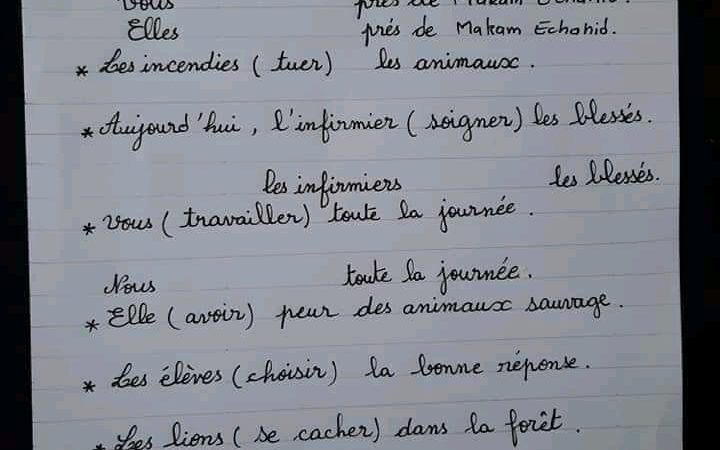 Vous près de Makam Echahid.
Elles prés de Makam Echahid.
* Les incendies ( tuer) les animaux .
* Aujourd'hui , l'infirmier ( soigner) les blessés.
les infirmiers les blessés.
* Vous ( travailler) toute la journée .
Nous toute la journée .
* Elle ( avoir) peur des animaux sauvage .
* Les élèves (choisir) la bonne réponse .
* Les lions ( se cacher) dans la forêt .